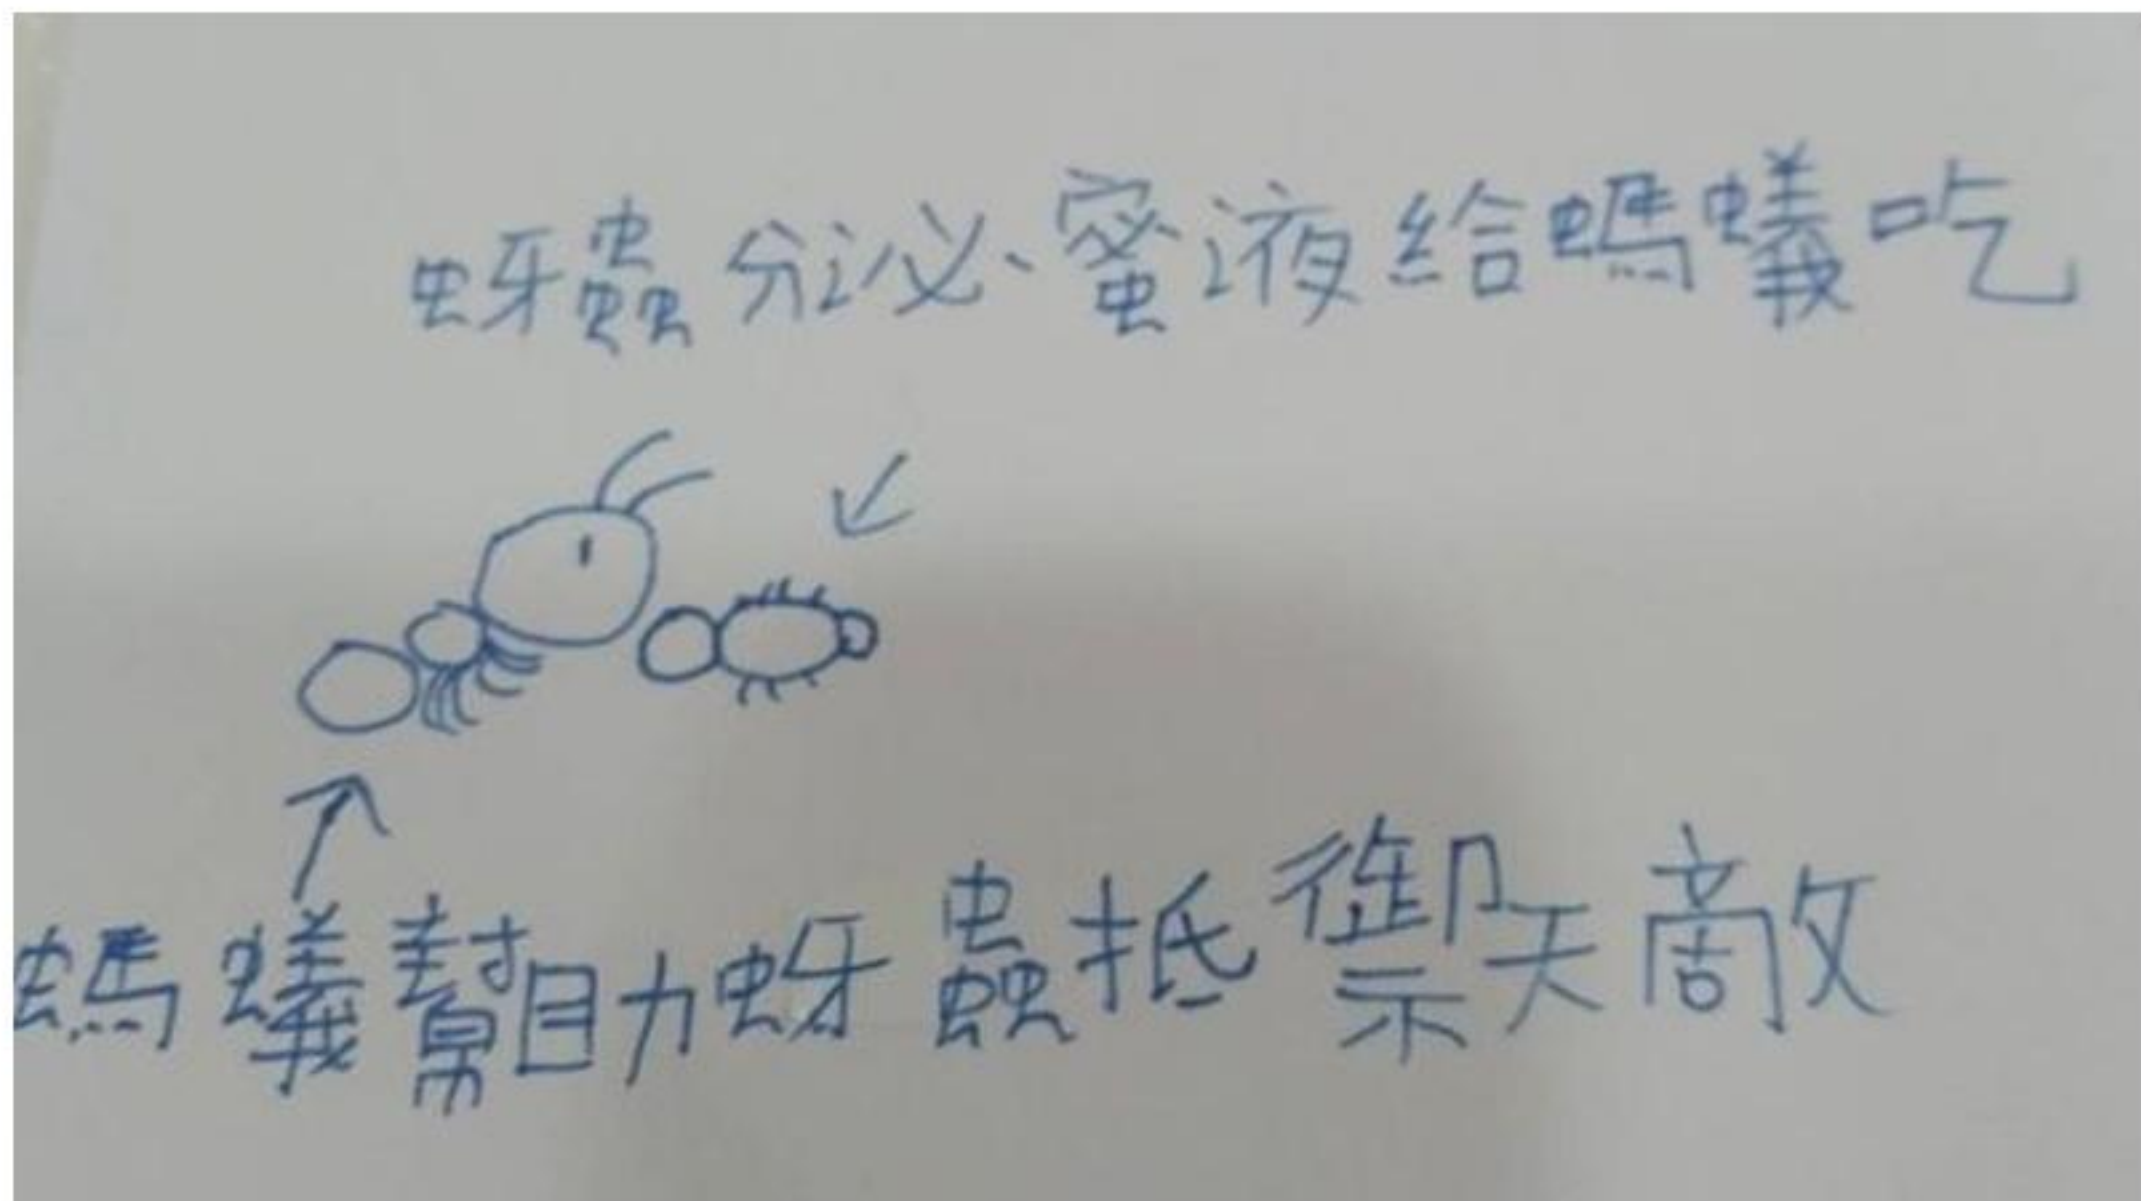 蚜蟲分泌、蜜液給螞蟻吃
螞蟻幫助蚜蟲抵禦天敵